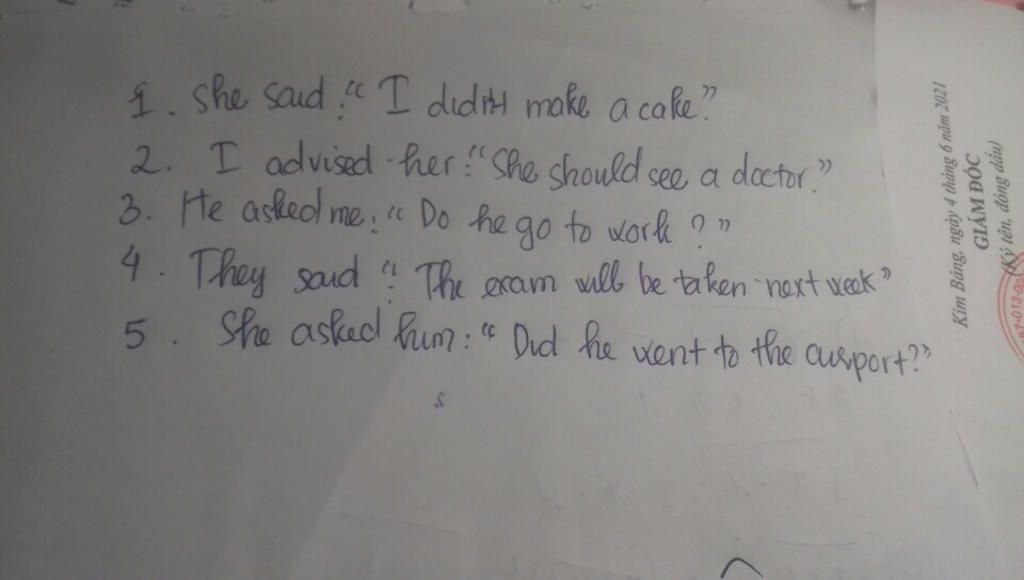 1. She said :“ I didn't make a cake.”
2. I advised her :“She should see a doctor.”
3. He asked me :“ Do he go to work ? ”
4. They said :“ The exam will be taken next week”
5. She asked him :“ Did he went to the airport?”
Kim Bảng, ngày 4 tháng 6 năm 2021
GIÁM ĐỐC
(Ký tên, đóng dấu)